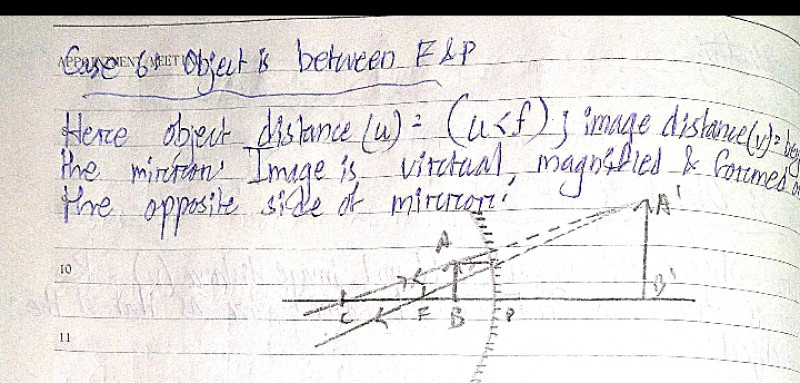 APPOINTMENT MEETING
Case 6: Object is between F & P
Here object distance (u) = (u<f); image distance (v) =
the mirror. Image is virtual, magnified & formed
the opposite side of mirror.
A'
A
10
C F B P B'
11